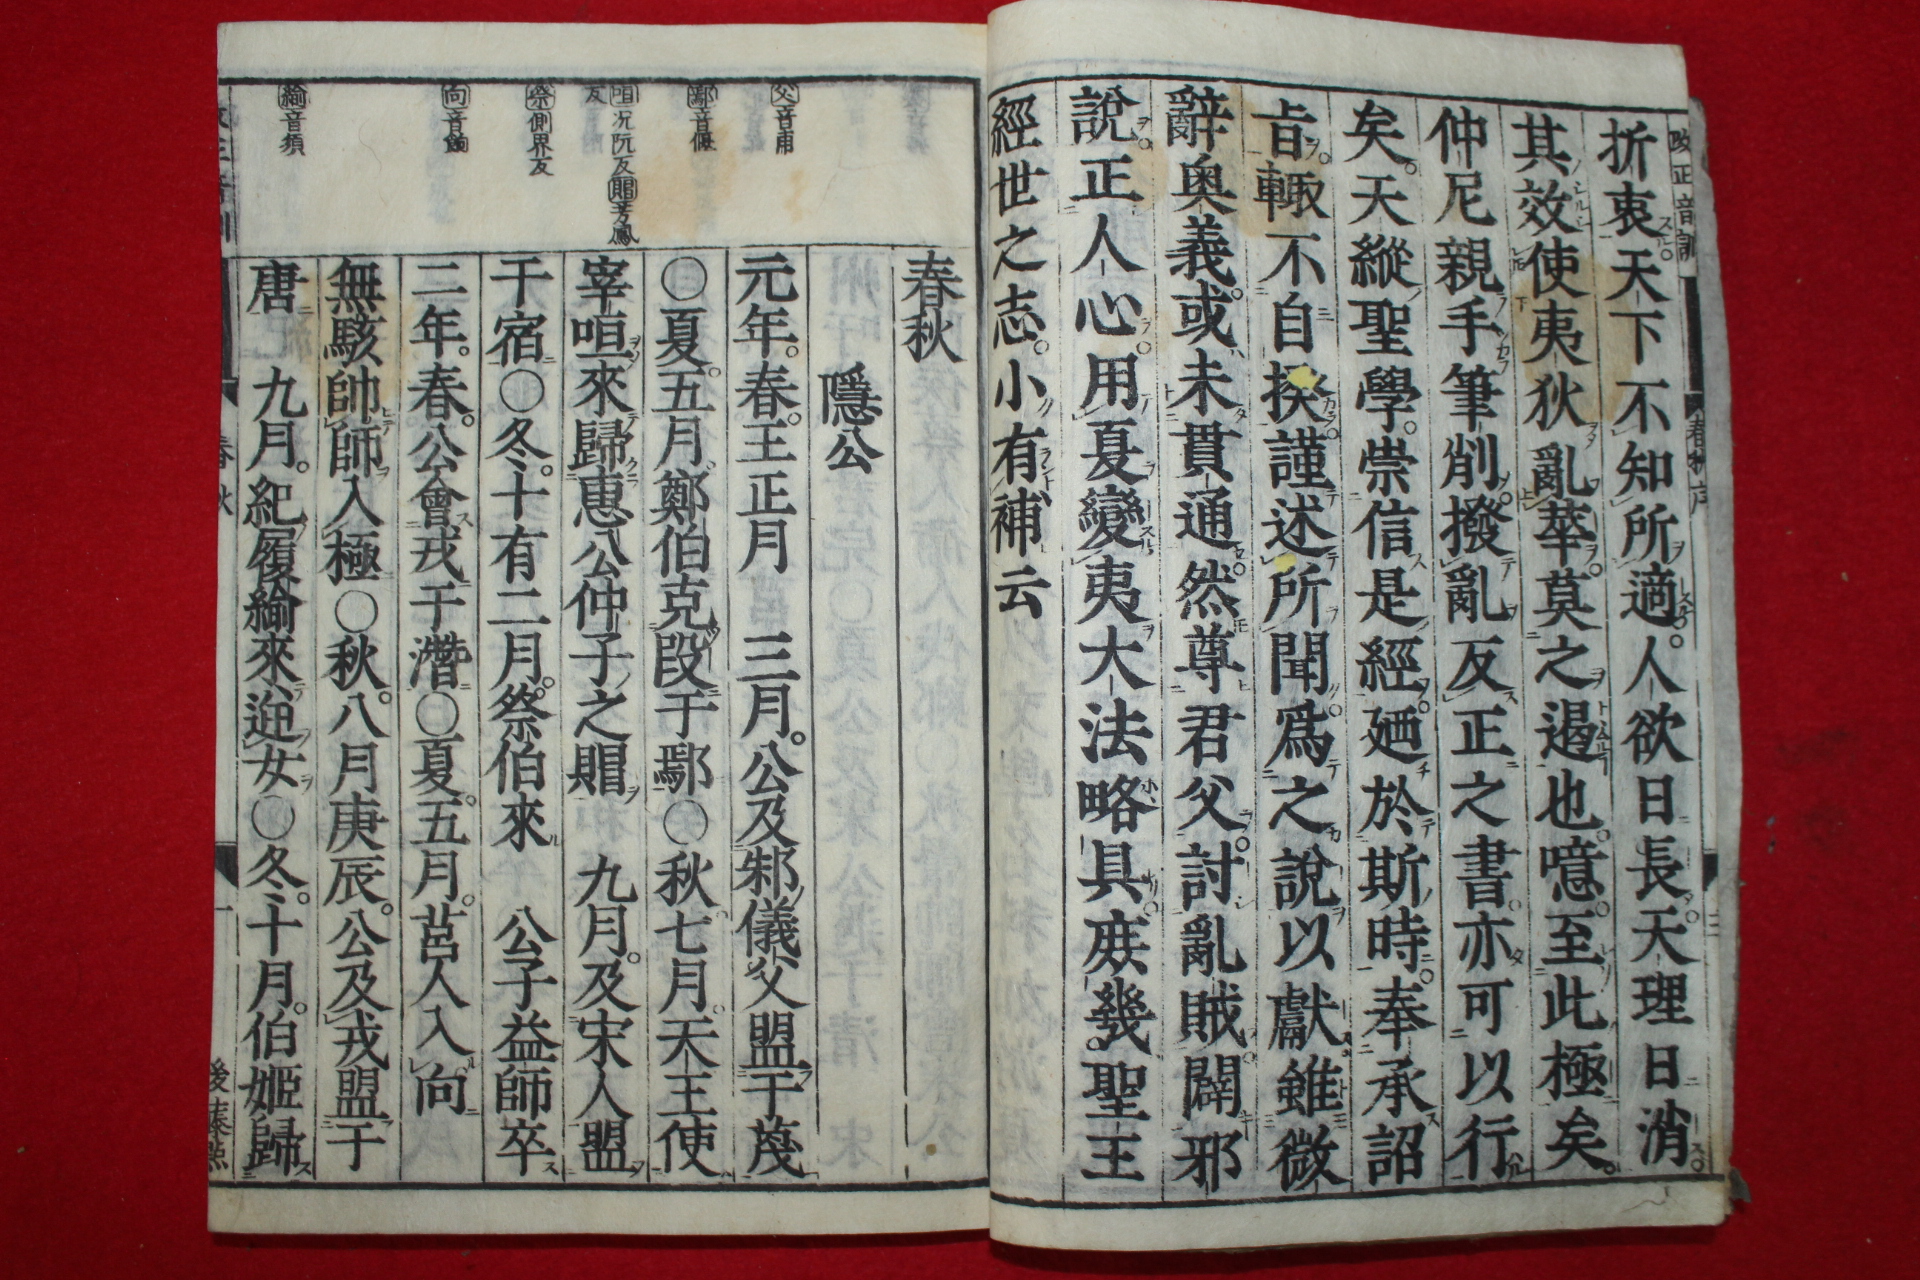 改正音訓
春秋序
折衷天下不知所適人欲日長天理日消
其效使夷狄亂華莫之遏也噫至此極矣
仲尼親手筆削撥亂反正之書亦可以行
矣天縱聖學崇信是經廼於斯時奉承詔
旨輙不自揆謹述所聞爲之說以獻雖微
辭奥義或未貫通然尊君父討亂賊闢邪
說正人心用夏變夷大法略具庻幾聖王
經世之志小有補云
春秋
隱公
元年春王正月 三月公及邾儀父盟于蔑
○夏五月鄭伯克段于鄢○秋七月天王使
宰咺來歸惠公仲子之賵 九月及宋人盟
于宿○冬十有二月祭伯來 公子益師卒
二年春公會戎于潛○夏五月莒人入向
無駭帥師入極○秋八月庚辰公及戎盟于
唐 九月紀履緰來逆女○冬十月伯姬歸
父音甫
鄢音偃
咺况阮反賵芳鳳
反
祭側界反
向音餉
緰音須
春秋
一